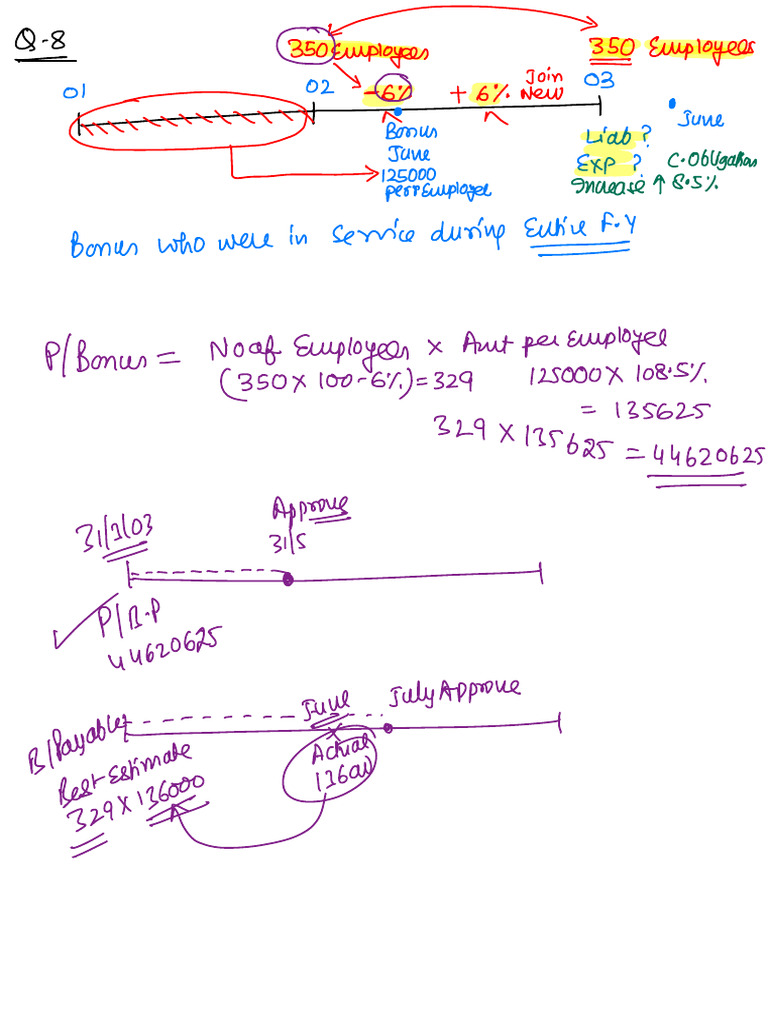 Q-8
350 Employees
350 Employees
01
02
-6%
+ 6% Join New
03
Bonus
June
125000
per Employee
June
Liab?
Exp? C.Obligation
Increase ↑ 8.5%
Bonus who were in service during Entire F.Y
P/Bonus = No of Employees × Amt per Employee
(350 × 100-6%) = 329 125000 × 108.5%
= 135625
329 × 135625 = 44620625
31/3/03
Approve
31/5
P/B.P
44620625
June
July Approve
B/Payable
Actual
136000
Best Estimate
329 × 136000